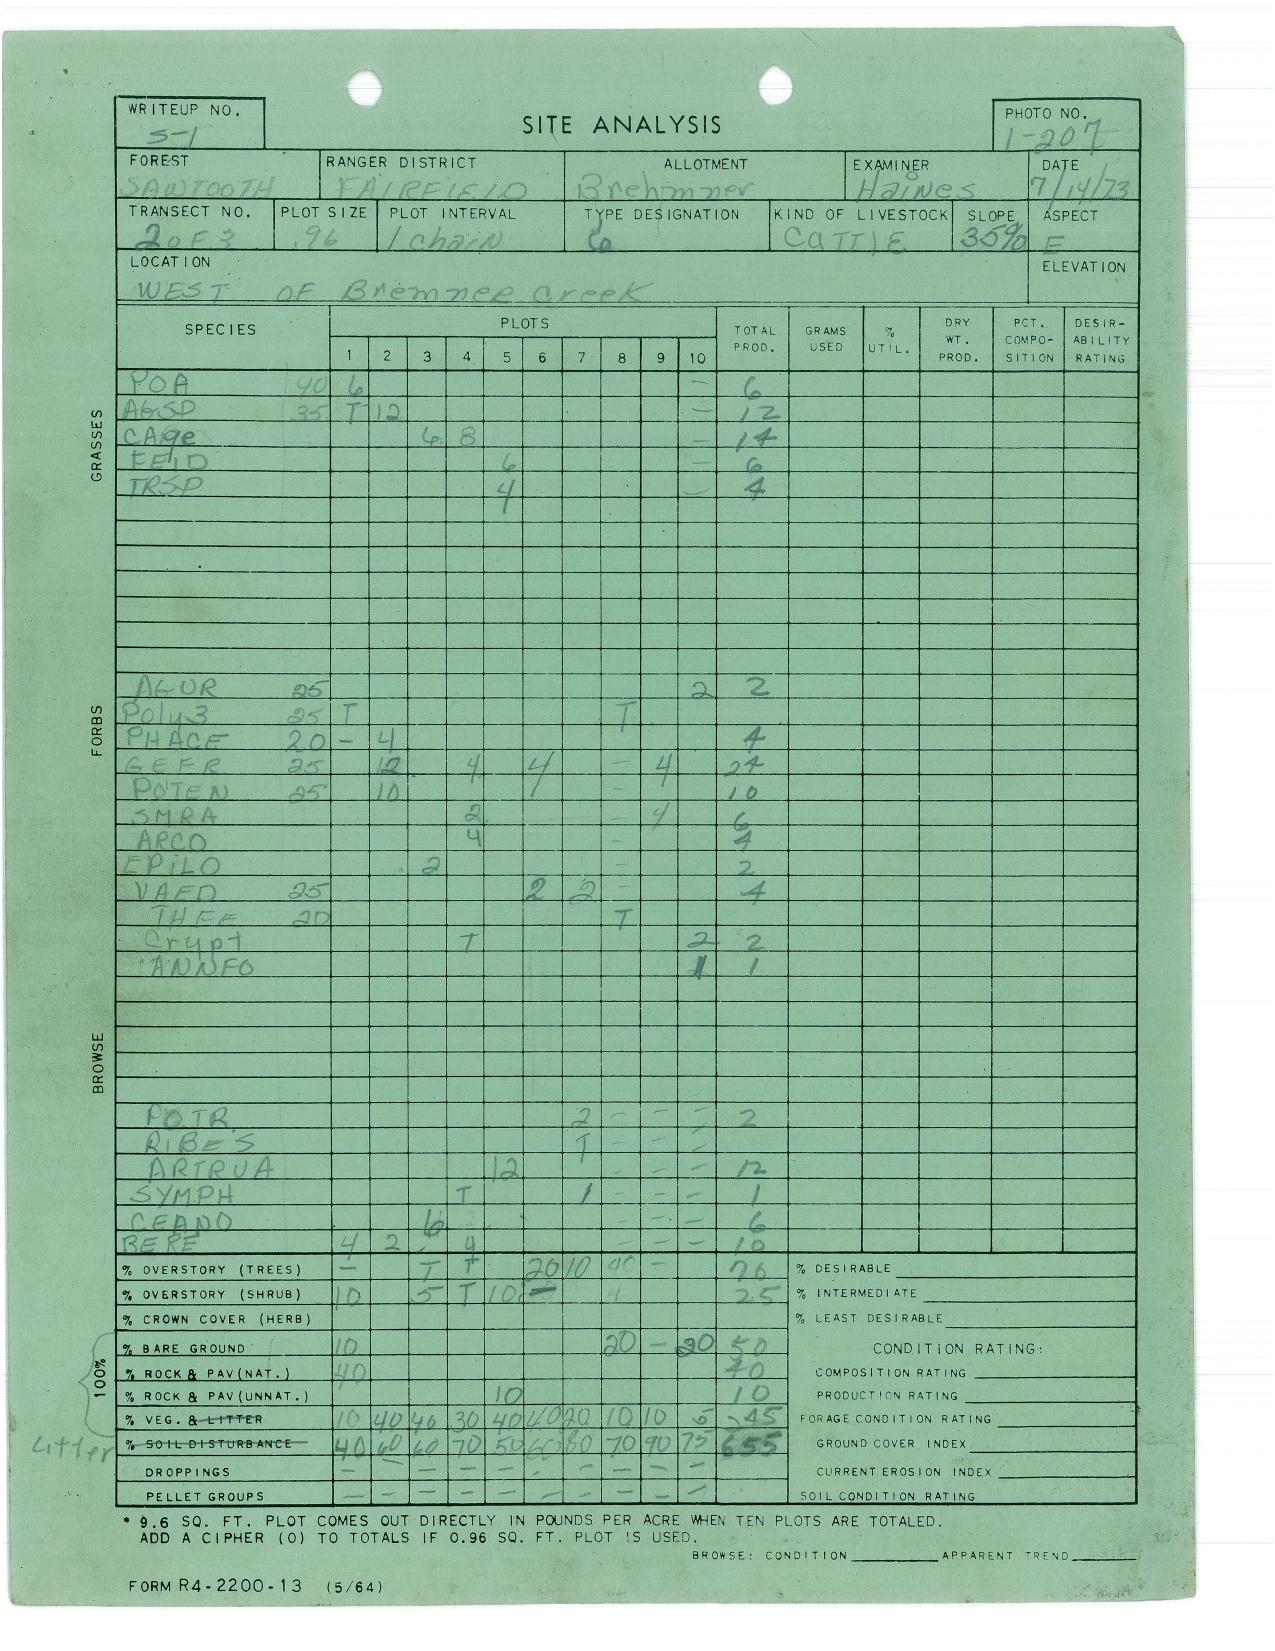 WRITEUP NO.
S-1
SITE ANALYSIS
PHOTO NO.
1-207
FOREST RANGER DISTRICT ALLOTMENT EXAMINER DATE
SAWTOOTH FAIRFIELD Brehmner Haines 7/14/73
TRANSECT NO. PLOT SIZE PLOT INTERVAL TYPE DESIGNATION KIND OF LIVESTOCK SLOPE ASPECT
2 OF 3 .96 1 chain 6 CATTLE 35% E
LOCATION ELEVATION
WEST OF Bremner creek
SPECIES PLOTS TOTAL PROD. GRAMS USED % UTIL. DRY WT. PROD. PCT. COMPO- SITION DESIR- ABILITY RATING
1 2 3 4 5 6 7 8 9 10
GRASSES
POA 40 6 – 6
AGSP 35 T 12 – 12
CAge 6 8 – 14
FEID 6 – 6
TRSP 4 – 4
FORBS
AGUR 25 2 2
Poly3 25 T T
PHACE 20 – 4 4
GEFR 25 12 4 4 – 4 24
POTEN 25 10 – 10
SMRA 2 – 4 6
ARCO 4 – 4
EPILO 2 – 2
VAED 25 2 2 – 4
THFE 20 T
Crypt T 2 2
ANNFO 1 1
BROWSE
POTR 2 – – – 2
RIBES T – – –
ARTRUA 12 – – – 12
SYMPH T 1 – – – 1
CEANO 6 – – – 6
BERE 4 2 – 4 – – – 10
% OVERSTORY (TREES) – T T 20 10 40 – 76
% OVERSTORY (SHRUB) 10 5 T 10 4 25
% CROWN COVER (HERB)
100%
% BARE GROUND 10 20 – 20 50
% ROCK & PAV (NAT.) 40 40
% ROCK & PAV (UNNAT.) 10 10
% VEG. & LITTER 10 40 40 30 40 40 20 10 10 5 245
Litter % SOIL DISTURBANCE 40 60 60 70 50 60 80 70 90 75 655
DROPPINGS – – – – – – – – – –
PELLET GROUPS – – – – – – – – – –
% DESIRABLE
% INTERMEDIATE
% LEAST DESIRABLE
CONDITION RATING:
COMPOSITION RATING
PRODUCTION RATING
FORAGE CONDITION RATING
GROUND COVER INDEX
CURRENT EROSION INDEX
SOIL CONDITION RATING
* 9.6 SQ. FT. PLOT COMES OUT DIRECTLY IN POUNDS PER ACRE WHEN TEN PLOTS ARE TOTALED.
ADD A CIPHER (0) TO TOTALS IF 0.96 SQ. FT. PLOT IS USED.
BROWSE: CONDITION APPARENT TREND
FORM R4-2200-13 (5/64)